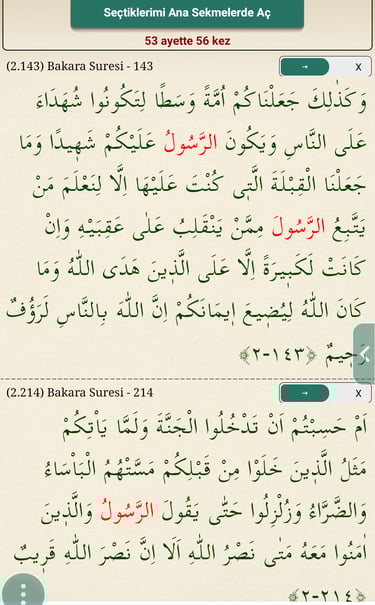 Seçtiklerimi Ana Sekmelerde Aç
53 ayette 56 kez
(2.143) Bakara Suresi - 143 → X
وَكَذٰلِكَ جَعَلْنَاكُمْ اُمَّةً وَسَطًا لِتَكُونُوا شُهَدَاءَ
عَلَى النَّاسِ وَيَكُونَ الرَّسُولُ عَلَيْكُمْ شَهٖيدًا وَمَا
جَعَلْنَا الْقِبْلَةَ الَّتٖى كُنْتَ عَلَيْهَا اِلَّا لِنَعْلَمَ مَنْ
يَتَّبِعُ الرَّسُولَ مِمَّنْ يَنْقَلِبُ عَلٰى عَقِبَيْهِ وَاِنْ
كَانَتْ لَكَبٖيرَةً اِلَّا عَلَى الَّذٖينَ هَدَى اللّٰهُ وَمَا
كَانَ اللّٰهُ لِيُضٖيعَ اٖيمَانَكُمْ اِنَّ اللّٰهَ بِالنَّاسِ لَرَؤُفٌ
رَحٖيمٌ ﴿١٤٣-٢﴾
(2.214) Bakara Suresi - 214 → X
اَمْ حَسِبْتُمْ اَنْ تَدْخُلُوا الْجَنَّةَ وَلَمَّا يَاْتِكُمْ
مَثَلُ الَّذٖينَ خَلَوْا مِنْ قَبْلِكُمْ مَسَّتْهُمُ الْبَاْسَاءُ
وَالضَّرَّاءُ وَزُلْزِلُوا حَتّٰى يَقُولَ الرَّسُولُ وَالَّذٖينَ
اٰمَنُوا مَعَهُ مَتٰى نَصْرُ اللّٰهِ اَلَا اِنَّ نَصْرَ اللّٰهِ قَرٖيبٌ
﴿٢١٤-٢﴾